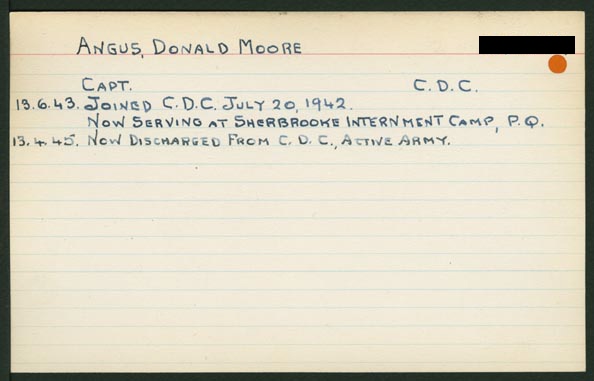 ANGUS, DONALD MOORE
CAPT. C.D.C.
13.6.43. JOINED C.D.C. JULY 20, 1942.
NOW SERVING AT SHERBROOKE INTERNMENT CAMP, P.Q.
13.4.45. NOW DISCHARGED FROM C.D.C., ACTIVE ARMY.